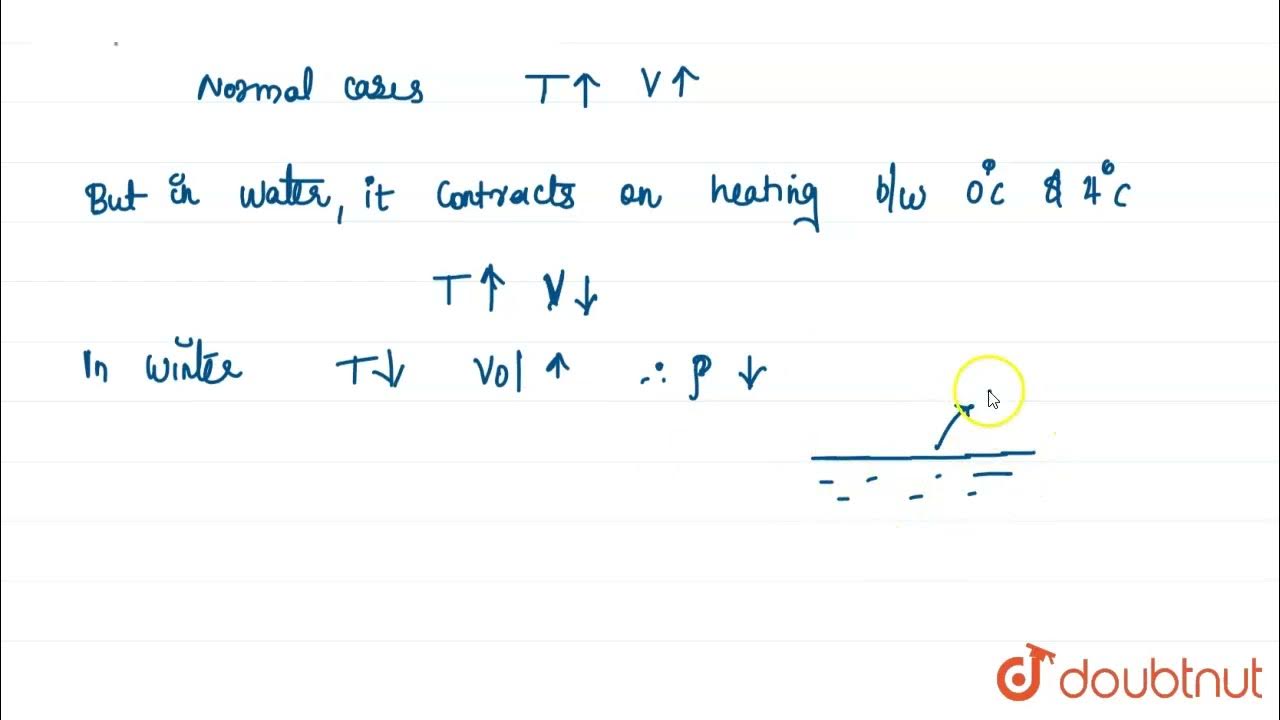 Normal cases T↑ V↑
But in water, it contracts on heating b/w 0°C & 4°C
T↑ V↓
In winter T↓ Vol ↑ ∴ ρ ↓
doubtnut